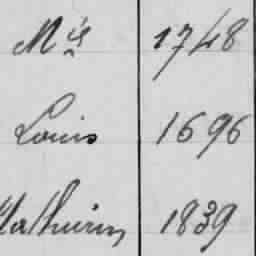 Mis 1748
Louis 1696
Mathurin 1839